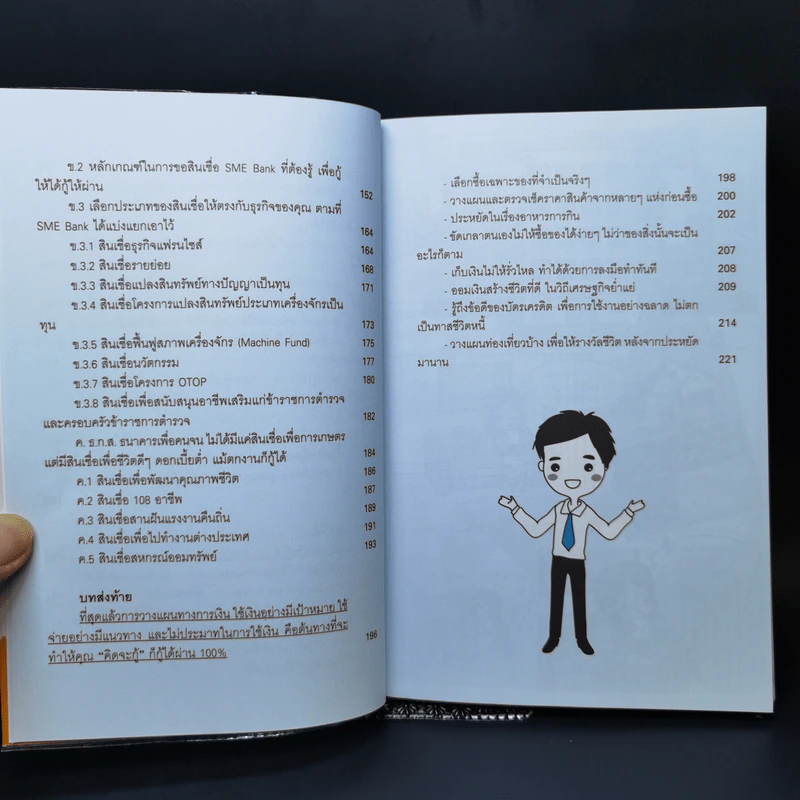 ข.2 หลักเกณฑ์ในการขอสินเชื่อ SME Bank ที่ต้องรู้ เพื่อกู้
ให้ได้กู้ให้ผ่าน 152
ข.3 เลือกประเภทของสินเชื่อให้ตรงกับธุรกิจของคุณ ตามที่
SME Bank ได้แบ่งแยกเอาไว้ 164
ข.3.1 สินเชื่อธุรกิจแฟรนไชส์ 164
ข.3.2 สินเชื่อรายย่อย 168
ข.3.3 สินเชื่อแปลงสินทรัพย์ทางปัญญาเป็นทุน 171
ข.3.4 สินเชื่อโครงการแปลงสินทรัพย์ประเภทเครื่องจักรเป็น
ทุน 173
ข.3.5 สินเชื่อฟื้นฟูสภาพเครื่องจักร (Machine Fund) 175
ข.3.6 สินเชื่อนวัตกรรม 177
ข.3.7 สินเชื่อโครงการ OTOP 180
ข.3.8 สินเชื่อเพื่อสนับสนุนอาชีพเสริมแก่ข้าราชการตำรวจ
และครอบครัวข้าราชการตำรวจ 182
ค. ธ.ก.ส. ธนาคารเพื่อคนจน ไม่ได้มีแค่สินเชื่อเพื่อการเกษตร
แต่มีสินเชื่อเพื่อชีวิตดีๆ ดอกเบี้ยต่ำ แม้ตกงานก็กู้ได้ 184
ค.1 สินเชื่อเพื่อพัฒนาคุณภาพชีวิต 186
ค.2 สินเชื่อ 108 อาชีพ 187
ค.3 สินเชื่อสานฝันแรงงานคืนถิ่น 189
ค.4 สินเชื่อเพื่อไปทำงานต่างประเทศ 191
ค.5 สินเชื่อสหกรณ์ออมทรัพย์ 193
บทส่งท้าย
ที่สุดแล้วการวางแผนทางการเงิน ใช้เงินอย่างมีเป้าหมาย ใช้
จ่ายอย่างมีแนวทาง และไม่ประมาทในการใช้เงิน คือต้นทางที่จะ
ทำให้คุณ "คิดจะกู้" ก็กู้ได้ผ่าน 100% 196
- เลือกซื้อเฉพาะของที่จำเป็นจริงๆ 198
- วางแผนและตรวจเช็คราคาสินค้าจากหลายๆ แห่งก่อนซื้อ 200
- ประหยัดในเรื่องอาหารการกิน 202
- ขัดเกลาตนเองไม่ให้ซื้อของได้ง่ายๆ ไม่ว่าของสิ่งนั้นจะเป็น
อะไรก็ตาม 207
- เก็บเงินไม่ให้รั่วไหล ทำได้ด้วยการลงมือทำทันที 208
- ออมเงินสร้างชีวิตที่ดี ในวิถีเศรษฐกิจย่ำแย่ 209
- รู้ถึงข้อดีของบัตรเครดิต เพื่อการใช้งานอย่างฉลาด ไม่ตก
เป็นทาสชีวิตหนี้ 214
- วางแผนท่องเที่ยวบ้าง เพื่อให้รางวัลชีวิต หลังจากประหยัด
มานาน 221